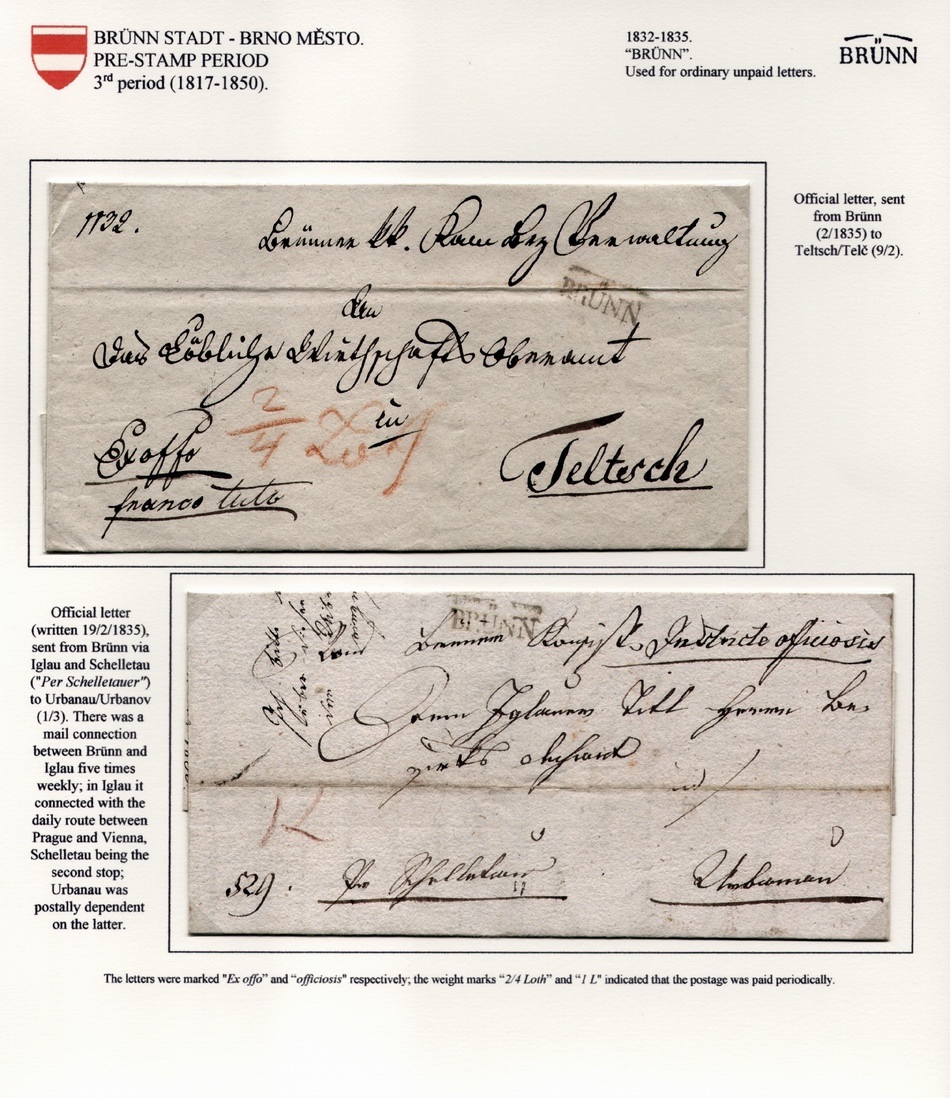 BRÜNN STADT - BRNO MĚSTO.
PRE-STAMP PERIOD
3rd period (1817-1850).
1832-1835.
“BRÜNN”.
Used for ordinary unpaid letters.
BRÜNN
1132.
Brünner kk. Kam Bez Verwaltung
BRÜNN
An
das Löbliche Wirthschafts Oberamt
in
2/4 Loth
Exoffo
franco tutto
Teltsch
Official letter, sent
from Brünn
(2/1835) to
Teltsch/Telč (9/2).
Official letter
(written 19/2/1835),
sent from Brünn via
Iglau and Schelletau
("Per Schelletauer")
to Urbanau/Urbanov
(1/3). There was a
mail connection
between Brünn and
Iglau five times
weekly; in Iglau it
connected with the
daily route between
Prague and Vienna,
Schelletau being the
second stop;
Urbanau was
postally dependent
on the latter.
BRÜNN
officiosis
Iglauer Titl Herrn Be-
529.
Pr Schelletau
Urbanau
The letters were marked "Ex offo” and “officiosis" respectively; the weight marks “2/4 Loth” and “1 L" indicated that the postage was paid periodically.